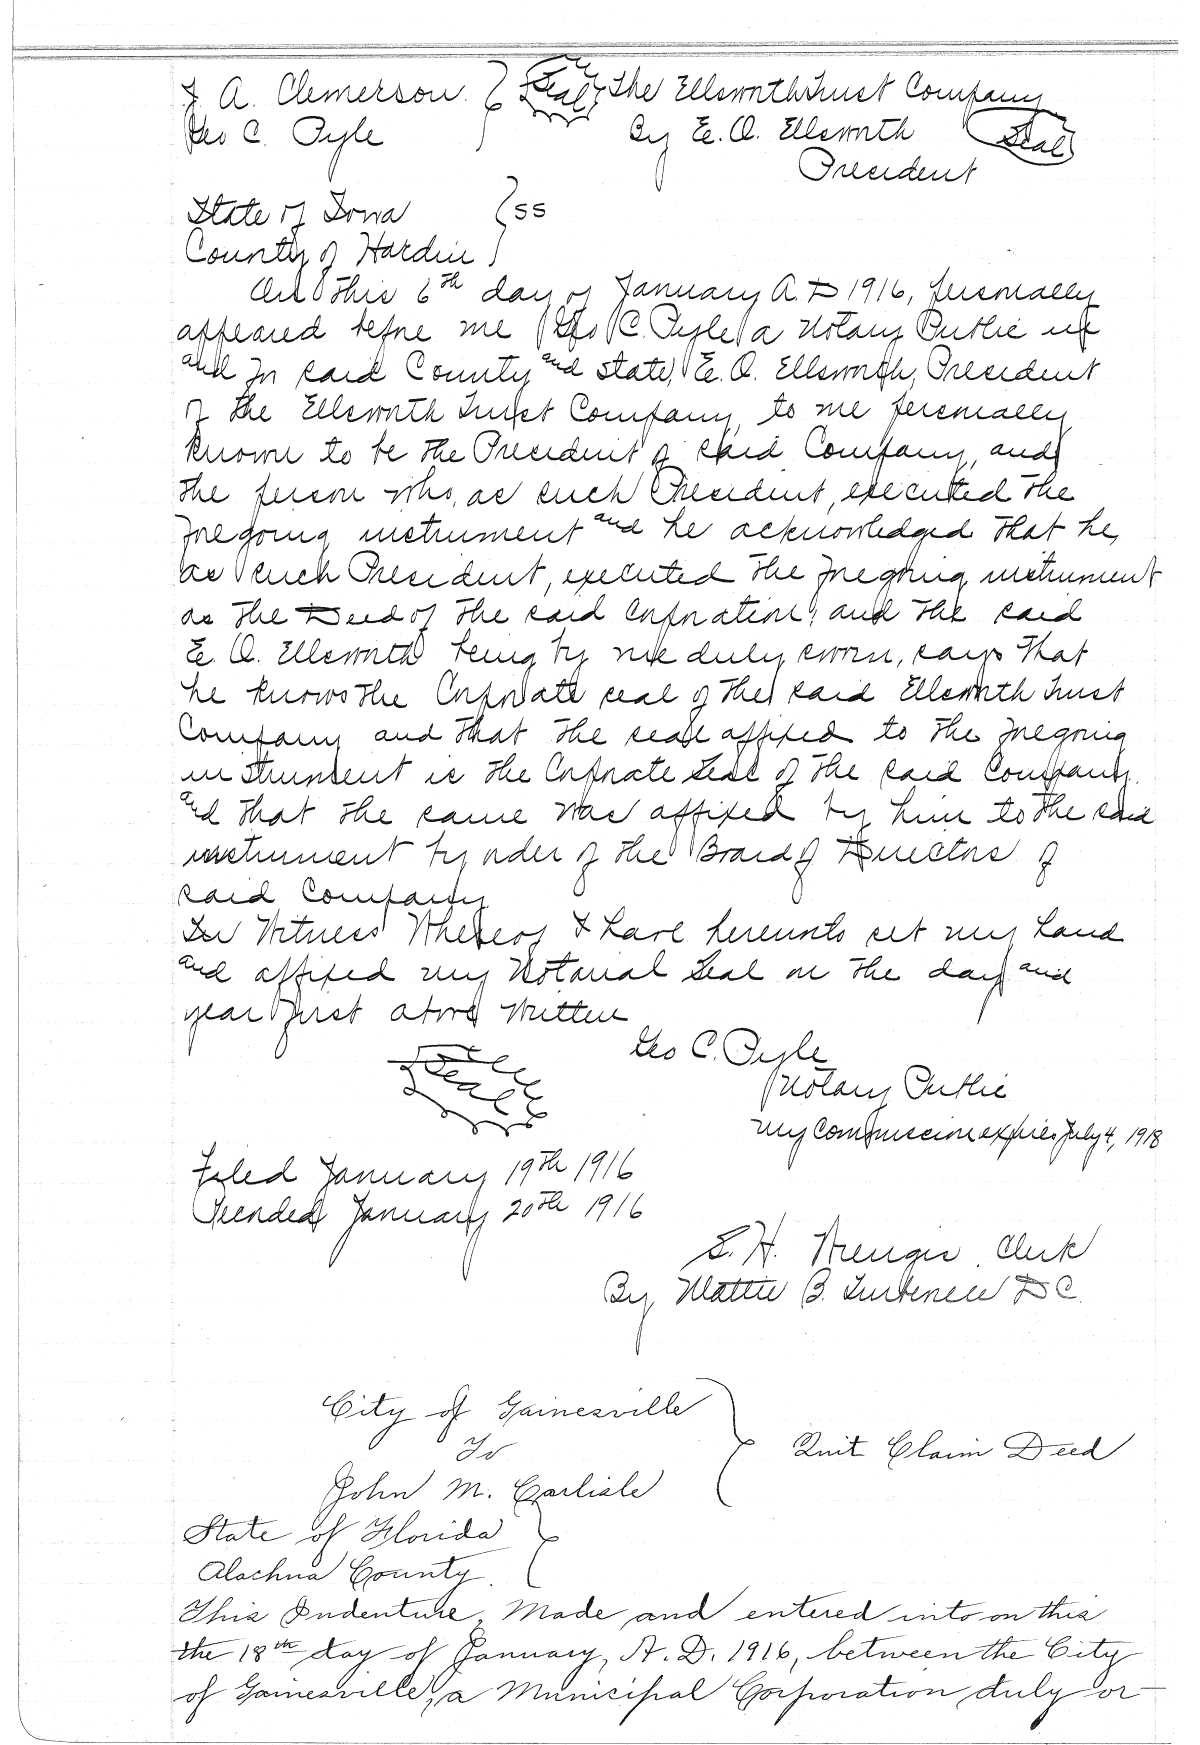 J A. Clemerson. Seal The Ellsworth Trust Company
Geo C. Pyle By E. O. Ellsworth Seal
President
State of Iowa ss
County of Hardin
On this 6th day of January A. D 1916, personally
appeared before me Geo C. Pyle a Notary Public in
and for said County and state, E. O. Ellsworth, President
of the Ellsworth Trust Company, to me personally
known to be the President of said Company, and
the person who, as such President, executed the
foregoing instrument and he acknowledged that he,
as such President, executed the foregoing instrument
as the Deed of the said corporation; and the said
E. O. Ellsworth being by me duly sworn, says that
he knows the Corporate seal of the said Ellsworth Trust
Company and that the seal affixed to the foregoing
instrument is the Corporate Seal of the said Company.
and that the same was affixed by him to the said
instrument by order of the Board of Directors of
said Company
In Witness Whereof I have hereunto set my hand
and affixed my Notarial Seal on the day and
year first above written
Geo C. Pyle
Seal Notary Public
My Commission expires July 4, 1918
Filed January 19th 1916
Recorded January 20th 1916
S. H. Wienges Clerk
By Mattie B. D C.
City of Gainesville
To Quit Claim Deed
John M. Carlisle
State of Florida
Alachua County.
This Indenture, Made and entered into on this
the 18th day of January, A. D. 1916, between the City
of Gainesville, a Municipal Corporation duly or-